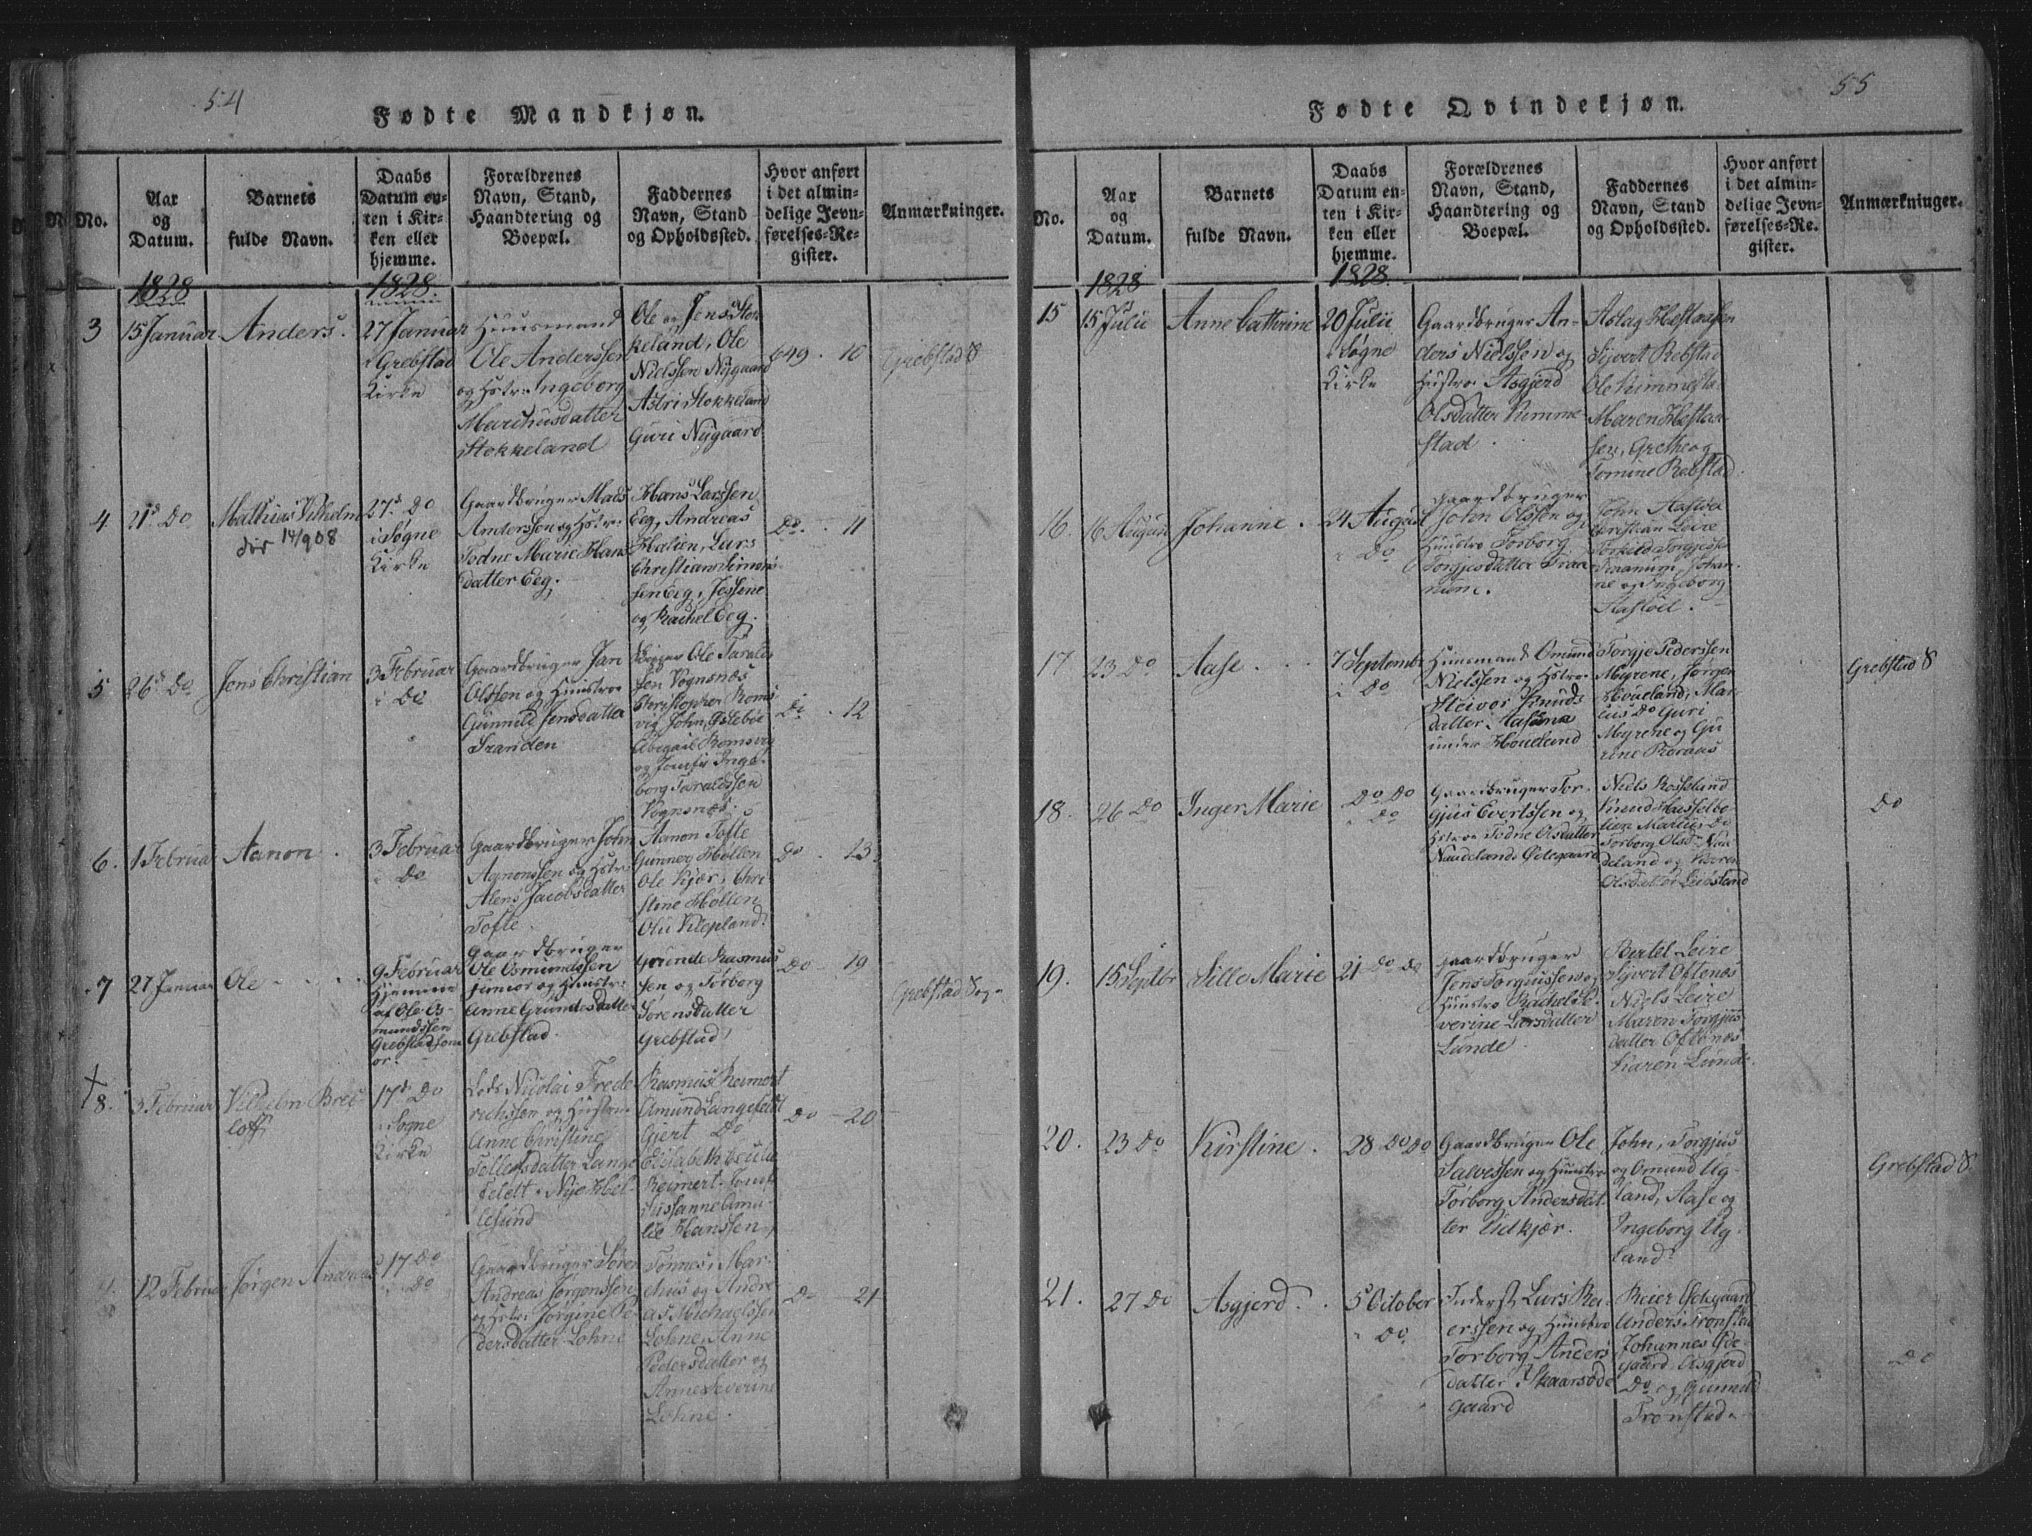 54
Fødte Mandkjøn.
No.
Aar
og
Datum.
Barnets
fulde Navn.
Daabs
Datum en-
ten i Kir-
ken eller
hjemme.
Forældrenes
Navn, Stand,
Haandtering og
Boepæl.
Faddernes
Navn, Stand
og Opholdssted.
Hvor anført
i det almin-
delige Jevn-
førelses-Re-
gister.
Anmærkninger.
1828
1828
3
15 Januar
Anders.
27 Januar
i Grebstad
Kirke
Huusmand
Ole Anderssen
og Hstr: Ingeborg
Marchusdatter
Stokkeland
Ole og Jens Stok
keland, Ole
Nielssen Nygaard
Astri Stokkeland
Guri Nygaard
649. 10
Grebstad S
4
21d Do
Mathias Vilhelm
dör 14/9 08
27d Do
i Søgne
Kirke
Gaardbruger Mads
Anderssen og Hstr:
Todne Marie Hans
datter Eeg.
Hans Larssen
Eeg, Andreas
Lars
Christian Simons
sen Eeg, Jessine
og Rachel Eeg.
Do. 11
5
26d Do
Jens Christian
3 Februar
i Do
Gaardbruger Jan
Olssen og Huustroe
Gunnild Jensdatter
Stranden
Ole Taralds
sen Vognsnæs
Christopher Roms
vig John
Abigail Romsvig
og Jomfr Inge-
borg Taraldssen
Vognsnæs.
Do. 12
6.
1 Februar
Aanon.
3 Februar
i Do
Gaardbruger John
Agnonssen og Hstr:
Alens Jacobsdatter
Tofte.
Aanon Tofte
Gunner Høllen
Ole Kjær, Chri-
stine Høllen
Do. 13
7
27 Januar
Ole
9 Februar
Hjemme
af Ole Os-
mundssen
Grebstad
Gaardbruger
Ole Osmundssen
junior og Huustr:
Anne Grundesdatter
Grebstad.
Grunde Rasmus
sen og Torborg
Sørensdatter
Grebstad
Do - 19
Grebstad Sogn
8.
3 Februar
Vilhelm
17d Do
i Søgne
Kirke
Lods Nicolai Frede-
richssen og Huustr:
Anne Christine
Tollefsdatter Lange
feldt. Nye Hel-
lesund
Rasmus Reimert
Amund Langefeldt
Gjert Do
Elisabeth
Reimert
Susanne Ama-
lie Hanssen
Do - 20
12 Februar
Jørgen Andreas
17 Do
i Do
Gaardbruger Søren
Andreas Jørgenssen
og Hstr: Jørgine Pe-
dersdatter Lohne
Tønnes, Mar-
chus og Andre
as Michaelssen
Lohne, Anne
Pedersdatter og
Anne Severine
Lohne.
Do 21
55
Fødte Qvindekjøn.
No.
Aar
og
Datum.
Barnets
fulde Navn.
Daabs
Datum en-
ten i Kir-
ken eller
hjemme.
Forældrenes
Navn, Stand,
Haandtering og
Boepæl.
Faddernes
Navn, Stand
og Opholdssted.
Hvor anført
i det almin-
delige Jevn-
førelses-Re-
gister.
Anmærkninger.
1828
1828
15
15 Julii
Anne Cathrine
20 Julii
i Søgne
Kirke
Gaardbruger An-
ders Nielssen og
Hustroe Asgjerd
Olsdatter Rimme-
stad.
Aslag
Sijvert Rebstad
Ole
Maren
Grethe og
Tomine Rebstad.
16.
16 August
Johanne.
24 August
i Do
Gaardbruger
John Olssen og
Huustroe Torborg
Torgjesdatter Traa
num.
John Aastøl
Christian Leire
Torkeld Torgjessen
Traanum, Johan-
ne og Ingeborg
Aastøel.
17
23 Do
Aase.
7 Septembr
i Do
Huusmand Omund
Nielssen og Hstroe
Steivor Knuds
datter
under Houeland
Torgje Pederssen
Myrene, Jørgen
Houeland, Mar-
Do Guri
Myrene og Gu
18.
26 Do
Inger Marie
Do Do
i Do
Gaardbruger Tor-
gjus Evertssen og
Hstroe Todne Olsdatter
Naudeland Ødegaard
Niels Rosseland
Knud
Torborg Olsd. Nau-
deland og Karen
Olsdatter
Do
19.
15 Septbr
Sille Marie
21 Do Do
Gaardbruger
Jens Torgiussen og
Huustroe Rachel Se-
verine Larsdatter
Lunde.
Bertel Leire
Sijvert Oftenæs
Niels Leire
Maren Torgjus
datter Oftenæs
Karen Lunde.
20.
23 Do
Kirstine.
28 Do Do
Gaardbruger Ole
Salvessen og Huustroe
Torborg Andersdat
ter Udkjær.
John, Torgjus
og Omund Ug-
land, Aase og
Ingeborg Ug-
land.
Grebstad S.
21.
27 Do
Asgjerd.
5 October
i Do
Inderst Lars Rei-
erssen og Huustroe
Torborg Anders
datter, Skaarsøde
gaard
Reier Ødegaard
Anders Tronstad
Johannes Øde-
gaard, Asgjerd
Do og Gunnild
Tronstad.
Do
Grebstad S